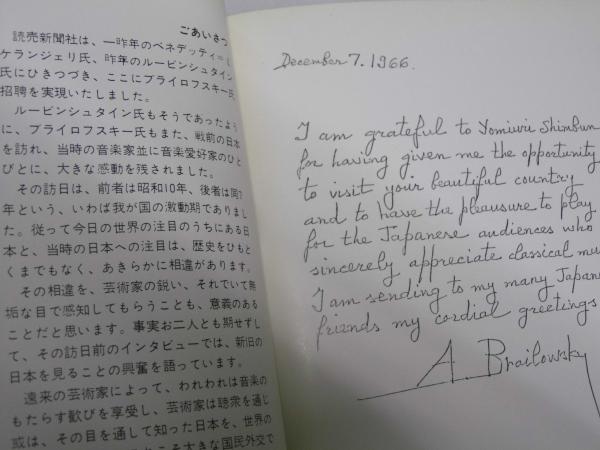 ごあいさつ
読売新聞社は、一昨年のベネデッティ=ミ
ケランジェリ氏、昨年のルービンシュタイン
氏にひきつづき、ここにブライロフスキー氏
招聘を実現いたしました。
ルービンシュタイン氏もそうであったよう
に、ブライロフスキー氏もまた、戦前の日本
を訪れ、当時の音楽家並に音楽愛好家のひと
びとに、大きな感動を残されました。
その訪日は、前者は昭和10年、後者は同7
年という、いわば我が国の激動期でありまし
た。従って今日の世界の注目のうちにある日
本と、当時の日本への注目は、歴史をひもと
くまでもなく、あきらかに相違があります。
その相違を、芸術家の鋭い、それでいて無
垢な目で感知してもらうことも、意義のある
ことだと思います。事実お二人とも期せずし
て、その訪日前のインタビューでは、新旧の
日本を見ることの興奮を語っています。
遠来の芸術家によって、われわれは音楽の
もたらす歓びを享受し、芸術家は聴衆を通じ
或は、その目を通して知った日本を、世界の
こそ大きな国民外交で
December 7. 1966.
I am grateful to Yomiuri Shimbun
for having given me the opportunity
to visit your beautiful country
and to have the pleausure to play
for the Japanese audiences who
sincerely appreciate classical mu
I am sending to my many Japane
friends my cordial greetings
A. Brailowsky